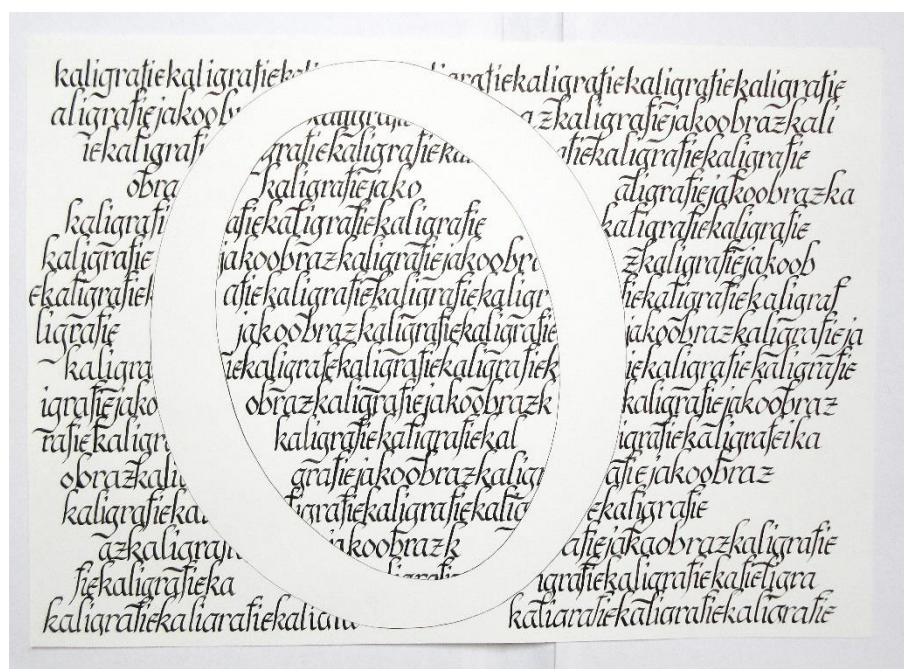 kaligrafiekaligrafieka igrafiekaligrafiekaligrafiekaligrafie
aligrafiejakoob kaligrafi azkaligrafiejakoobrazkali
iekaligrafi grafiekaligrafieka afiekaligrafiekaligrafie
obra kaligrafiejako aligrafiejakoobrazka
kaligrafi afiekaligrafiekaligrafie kaligrafiekaligrafie
kaligrafie jakoobrazkaligrafiejakoobra zkaligrafiejakoob
ekaligrafiek afiekaligrafiekaligrafiekaligr fiekaligrafiekaligraf
ligrafie jakoobrazkaligrafiekaligrafie jakoobrazkaligrafieja
kaligra iekaligrafiekaligrafiekaligrafiek iekaligrafiekaligrafie
igrafiejako obrazkaligrafiejakoobrazk kaligrafiejakoobraz
rafiekaligr kaligrafiekaligrafiekal igrafiekaligrafeika
obrazkalig grafiejakoobrazkaligr afiejakoobraz
kaligrafieka igrafiekaligrafiekalig ekaligrafie
azkaligrafi jakoobrazk afiejakaobrazkaligrafie
fiekaligrafieka ligrafie igrafiekaligrafiekafieligra
kaligrafiekaligrafiekaligra kaligrafiekaligrafiekaligrafie